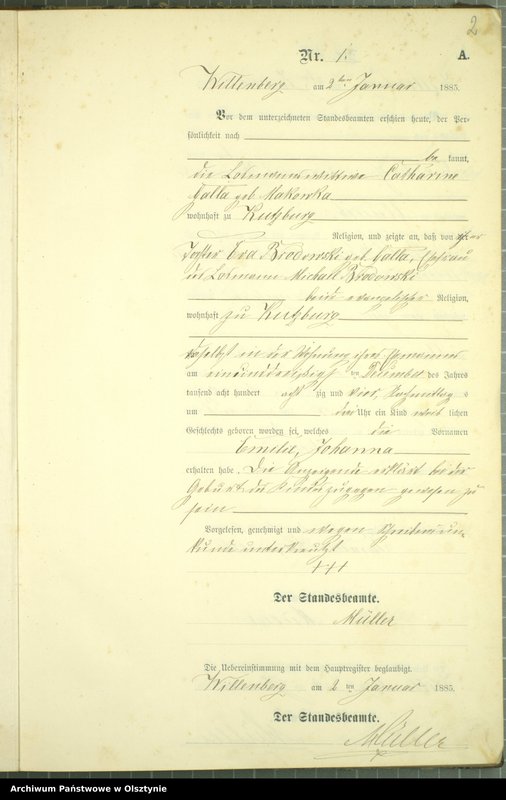 2
Nr. 1. A.
Willenberg am 2ten Januar 1885.
Vor dem unterzeichneten Standesbeamten erschien heute, der Per-
sönlichkeit nach
be kannt,
die Losmannswittwe Catharine
Galla geb Makowka
wohnhaft zu Kutzburg
Religion, und zeigte an, daß von ihrer
Tochter Eva Brodowski geb. Galla, Ehefrau
des Losmann Michael Brodowski
beide evangelischer Religion,
wohnhaft zu Kutzburg
daselbst in der Wohnung ihres Ehemannes
am neunundzwanzigsten Dezember des Jahres
tausend acht hundert acht zig und vier, Nachmittag s
um Uhr ein Kind weib lichen
Geschlechts geboren worden sei, welches die Vornamen
Emilie, Johanna
erhalten habe. Die Anzeigende erklärt bei der
Geburt des Kindes zugegen gewesen zu
sein.
Vorgelesen, genehmigt und wegen Schreibensun-
kunde unterkreuzt
+++
Der Standesbeamte.
Müller
Die Uebereinstimmung mit dem Hauptregister beglaubigt.
Willenberg am 2 ten Januar 1885.
Der Standesbeamte.
Müller
Archiwum Państwowe w Olsztynie